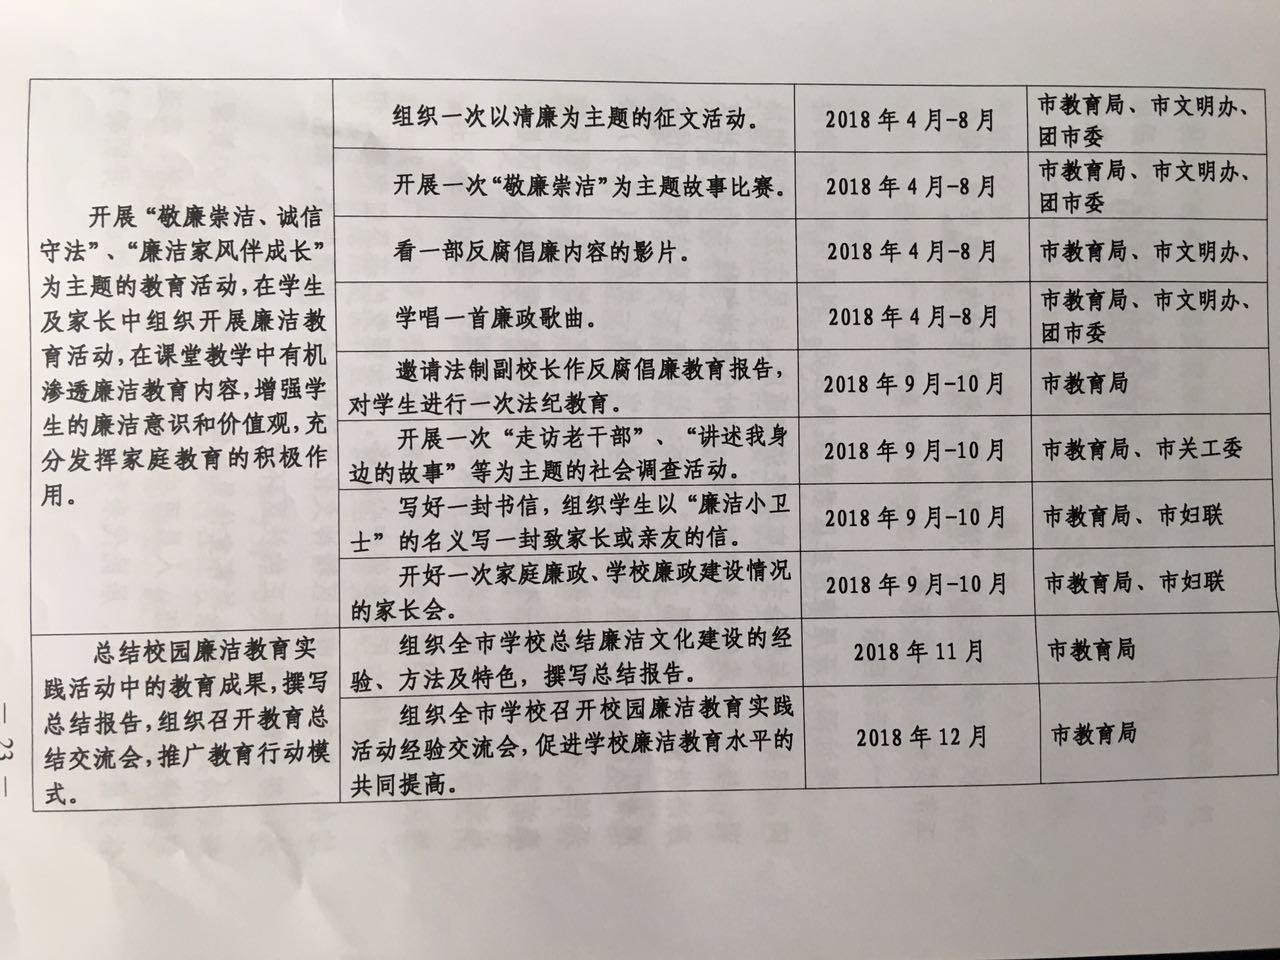 开展“敬廉崇洁、诚信
守法”、“廉洁家风伴成长”
为主题的教育活动,在学生
及家长中组织开展廉洁教
育活动,在课堂教学中有机
渗透廉洁教育内容,增强学
生的廉洁意识和价值观,充
分发挥家庭教育的积极作
用。
组织一次以清廉为主题的征文活动。
2018 年 4 月-8 月
市教育局、市文明办、
团市委
开展一次“敬廉崇洁”为主题故事比赛。
2018 年 4 月-8 月
市教育局、市文明办、
团市委
看一部反腐倡廉内容的影片。
2018 年 4 月-8 月
市教育局、市文明办、
学唱一首廉政歌曲。
2018 年 4 月-8 月
市教育局、市文明办、
团市委
邀请法制副校长作反腐倡廉教育报告,
对学生进行一次法纪教育。
2018 年 9 月-10 月
市教育局
开展一次“走访老干部”、“讲述我身
边的故事”等为主题的社会调查活动。
2018 年 9 月-10 月
市教育局、市关工委
写好一封书信，组织学生以“廉洁小卫
士”的名义写一封致家长或亲友的信。
2018 年 9 月-10 月
市教育局、市妇联
开好一次家庭廉政、学校廉政建设情况
的家长会。
2018 年 9 月-10 月
市教育局、市妇联
总结校园廉洁教育实
践活动中的教育成果,撰写
总结报告,组织召开教育总
结交流会,推广教育行动模
式。
组织全市学校总结廉洁文化建设的经
验、方法及特色，撰写总结报告。
2018 年 11 月
市教育局
组织全市学校召开校园廉洁教育实践
活动经验交流会,促进学校廉洁教育水平的
共同提高。
2018 年 12 月
市教育局
— 23 —